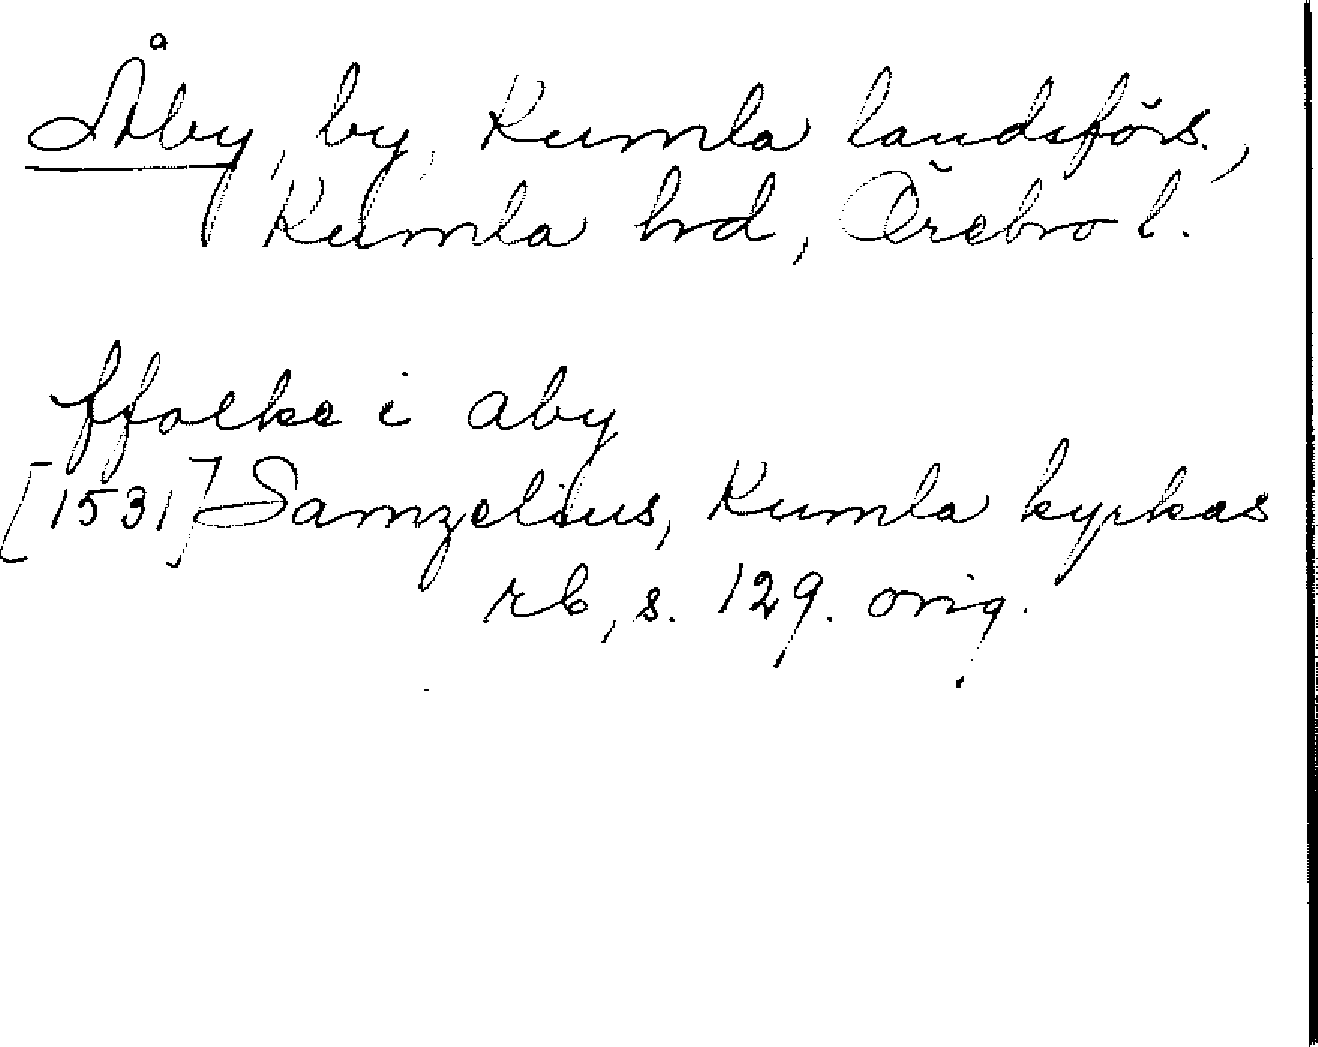 Åby, by, Kumla landsförs.,
Kumla hd, Örebro l.
ffolke i aby
[1531] Samzelius, Kumla kyrkas
rb, s. 129. orig.